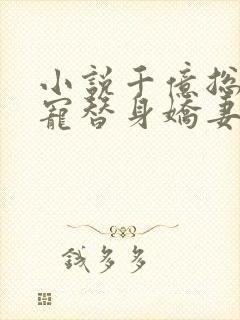 小説千億总
寵替身嬌妻
錢多多